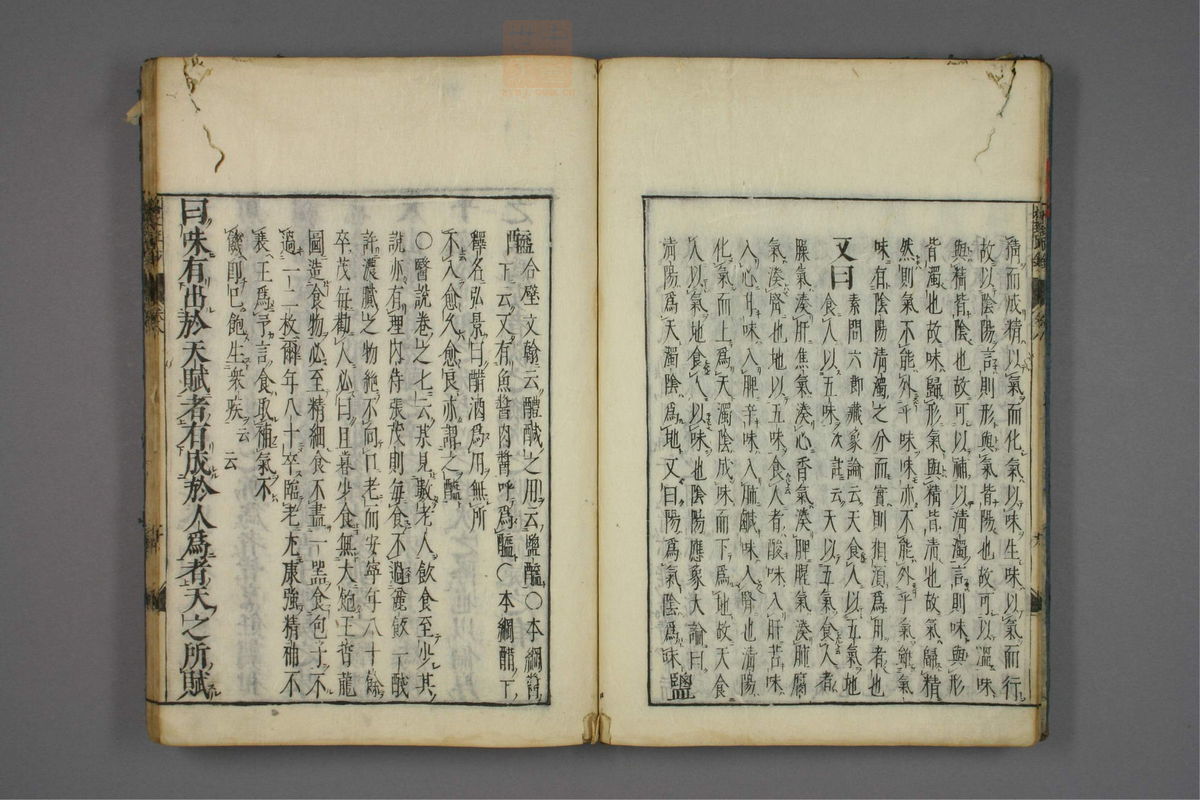 猗而成精以氣而化氣以味生味以氣而行
故以陰陽言則形與氣皆陽也故可以溫味
與精皆陰也故可以補以淸濁言則味與形
皆濁也故味歸形氣與精皆淸也故氣歸精
然則氣不能外乎味味亦不能外乎氣雖氣
味有陰陽淸濁之分而實則相須爲用者也
又曰 素問六節藏象論云天食人以五氣地
食人以五味次註云天以五氣食人者
臊氣湊肝焦氣湊心香氣湊脾腥氣湊肺腐
氣湊腎也地以五味食人者酸味入肝苦味
入心甘味入脾辛味入肺鹹味入腎也淸陽
化氣而上爲天濁陰成味而下爲地故天食
人以氣地食人以味也陰陽應象大論曰
淸陽爲天濁陰爲地又曰陽爲氣陰爲味 鹽
醢 合壁文翰云醯醎之用云鹽醢○本綱醬
下云又有魚醬肉醬呼爲醢○本綱醋下
釋名弘景曰醋酒爲用無所
不入愈久愈良亦謂之醯
○醫說卷之七云某見數老人飮食至少其
說亦有理内侍張茂則毎食不過麤飯一酨
許濃膩之物絶不向口老而安寧年八十餘
卒茂毎勸人必曰且暮少食無大飽王晳龍
圖造食物必至精細食不盡一器食包子不
過一二枚爾年八十卒臨老尤康強精神不
衰王爲予言食取補氣不
饑即已飽生衆疾云云
曰味有出於天賦者有成於人爲者天之所賦